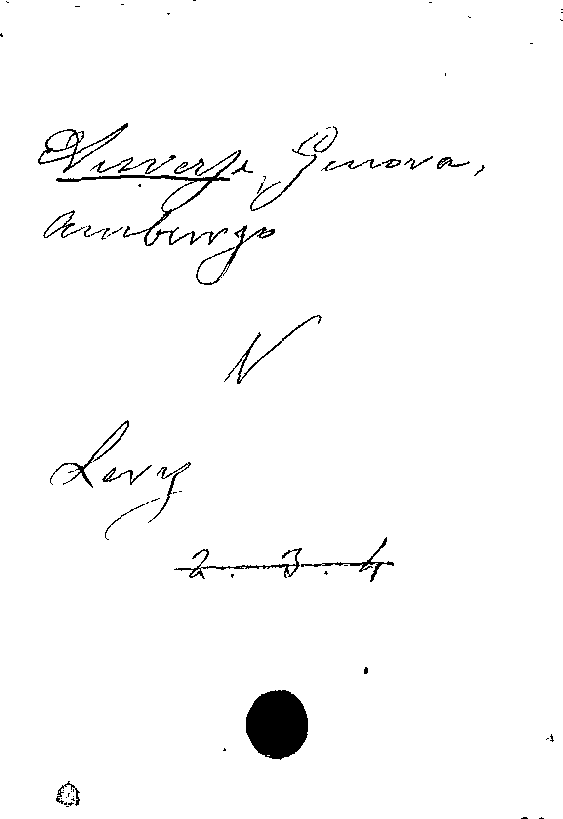 Genova,
Amburgo
N
Levy
2. 3. 4